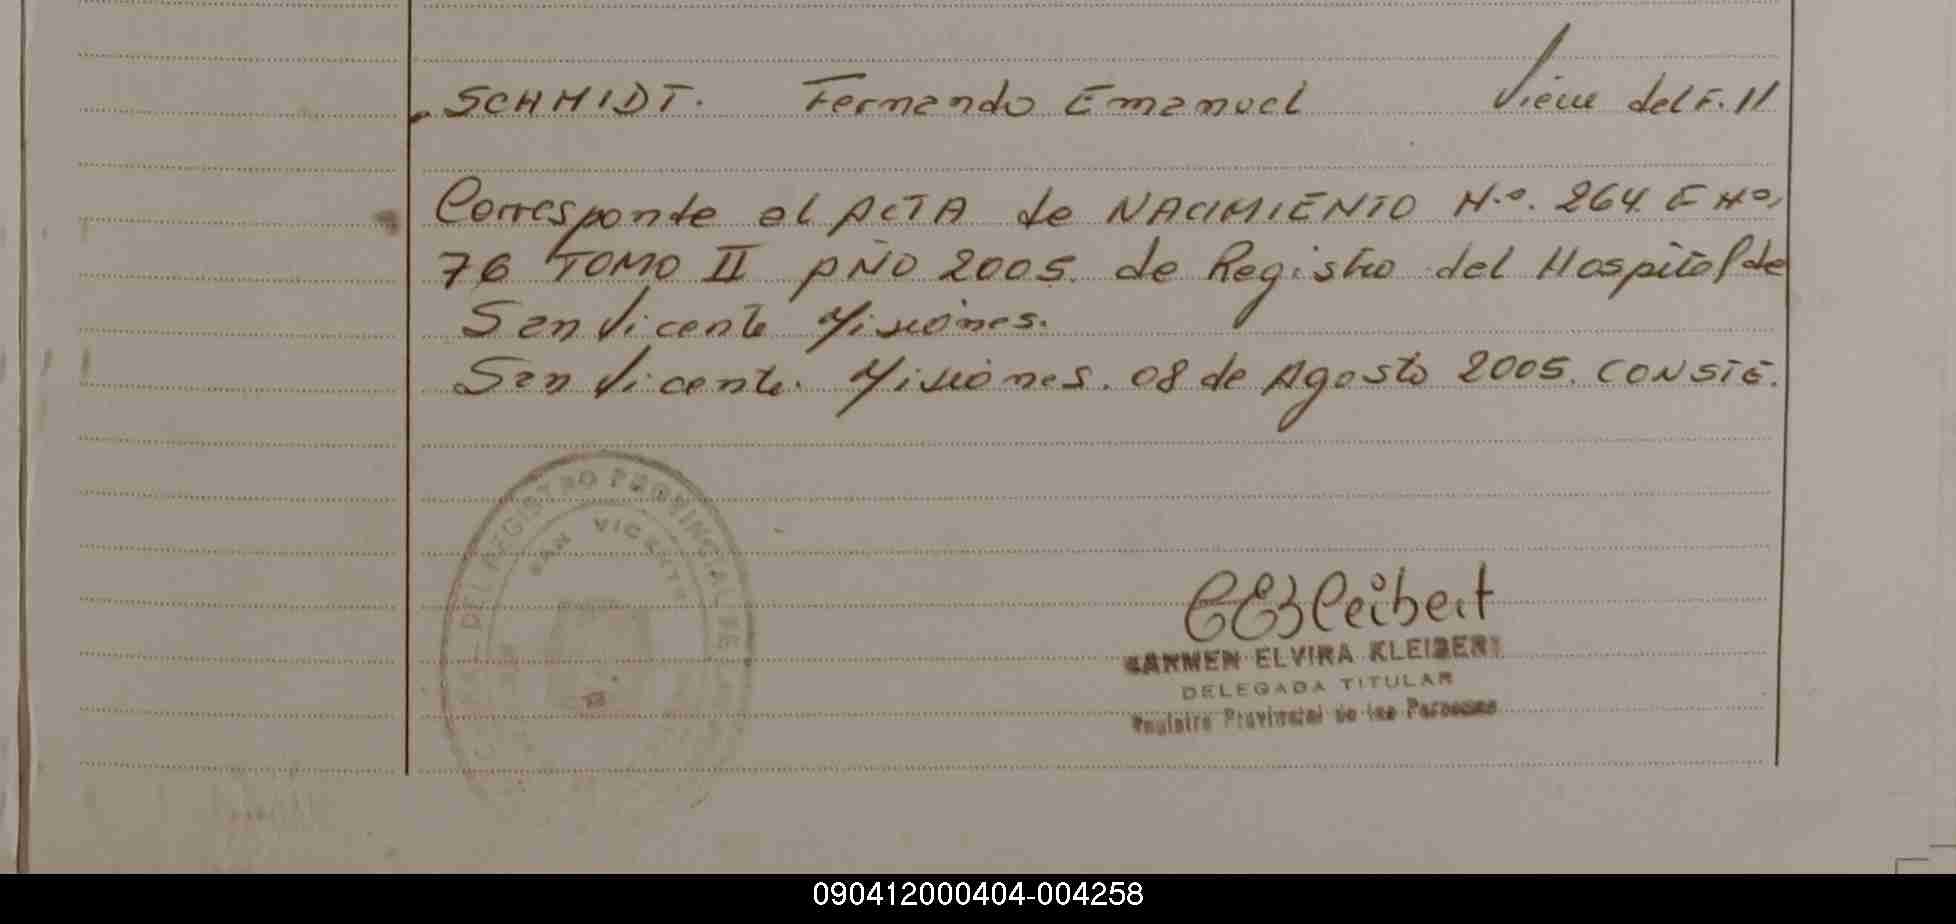 SCHMIDT. Fernando Emanuel Viene del F. 11
Corresponde al ACTA de NACIMIENTO N.º 264 F Nº.
76 TOMO II AÑO 2005. de Registro del Hospital de
San Vicente Misiones.
San Vicente. Misiones. 08 de Agosto 2005. CONSTE.
DEL REGISTRO PROVINCIAL DE
SAN VICENTE
CEKleibert
CARMEN ELVIRA KLEIBERT
DELEGADA TITULAR
Registro Provincial de las Personas
090412000404-004258